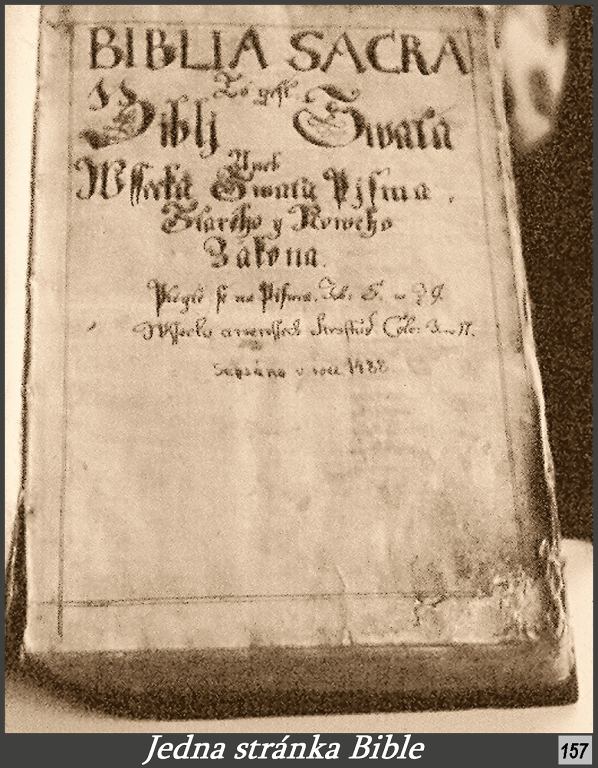 BIBLIA SACRA
To gest
Biblj Swatá
Aneb
Wssecká Swatá Pjsma,
Starého y Nového
Zákona.
se na Pisma. 5. 39.
Wssecko 3. 17.
Sepsáno v roce 1488
Jedna stránka Bible
157